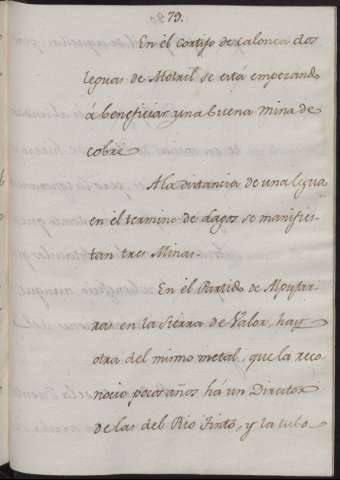 79.
En el Cortijo de Calonca dos
leguas de Motril se está empezando
á beneficiar una buena mina de
cobre
A la distancia de una legua
en el termino de Lagos se manifies-
tan tres Minas.
En el Partido de Alpujar-
ras en la Sierra de Valor, hay
otra del mismo metal, que la reco-
nocio pocos años há un Director
de las del Rio Tinto, y la tubo